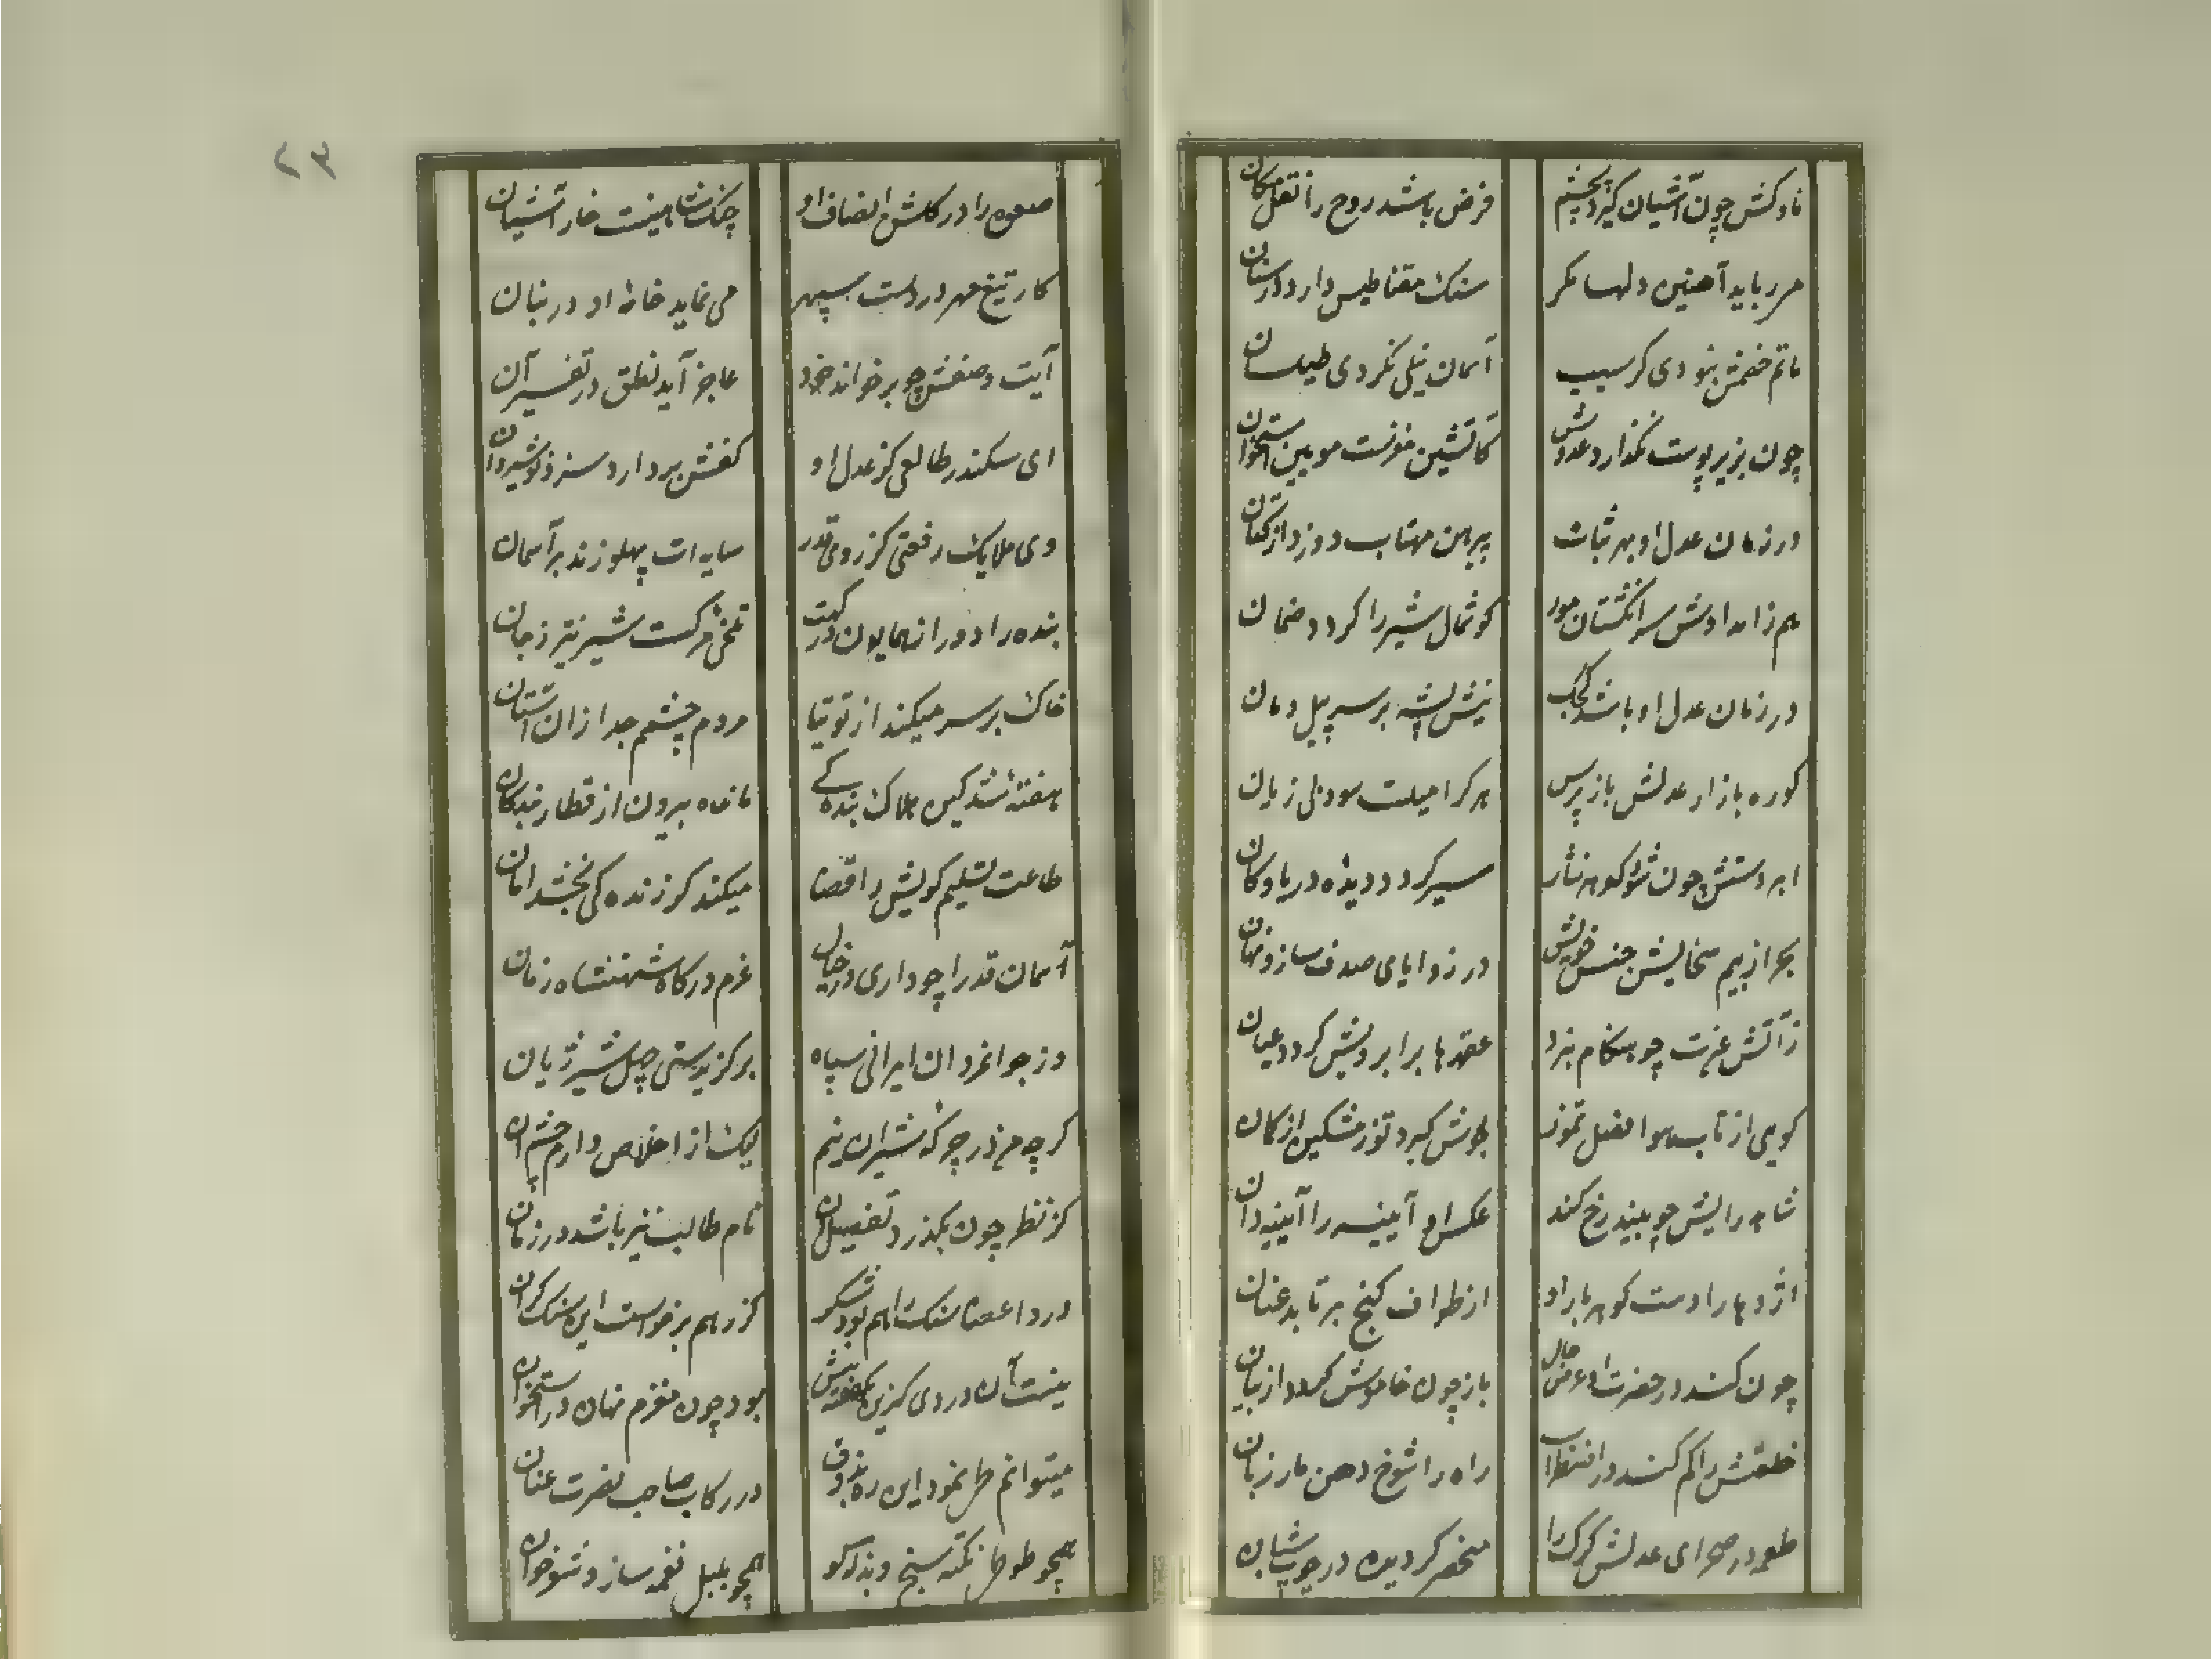 ناوکش چون آشیان گیرد بچشم
فرض باشد روح را نقل مکان
میرباید آهنین دلها مگر
سنک مقناطیس دارد در سنان
ماتم خصمش نبودی گر سبب
آسمان نیلی نکردی طیلسان
چون بزیر پوست نگذارد عدوش
کاتشین مغزست مو بین استخوان
در زمان عدل او بهر ثبات
پیرهن مهتاب دوزد از کتان
هم ز امدادش سر انکشتان مور
کوشمال شیر را کردد ضمان
در زمان عدل او باشد کجک
نیش پشه بر سر پیل دمان
کوره بازار عدلش باز پرس
هر کرا میلست سود بی زیان
ابر دستش چون شود کوهر نثار
سیر کردد دیده دریا و کان
بحر از بیم سخایش جنس خویش
در زوایای صدف سازد نهان
ز آتش غیرت چو هنکام نبرد
عقدها بر ابرویش کردد عیان
کوهی از تاب هوا فصل تموز
جوشش کیرد توز مشکین از کمان
شاهد رایش چو بیند رخ کند
عکس او آیینه را آیینه دان
اژدها را دست کوهر بار او
از طواف کنج برتابد عنان
چون کند در حضرت او عرض حال
باز چون خاموش کردد از بیان
خلقتش را کم کند در اضطراب
راه را شوخ دهن مار زبان
طعمه در صحرای عدلش کرک را
منحصر کردیده در چوب شبان
صعوه را در کلشن انصاف او
چنک شاهینست خار آشیان
کار تیغ مهر در دست سپهر
می نماید خامه او در بنان
آیت وصفش چو برخواند خرد
عاجز آید نطق در تفسیر آن
ای سکندر طالعی کز عدل او
کفش بردارد سزد نوشیروان
وی ملایک رفعتی کز روی قدر
سایه ات پهلو زند بر آسمان
بنده را دور از همایون درکهت
تلخی مرکست شیرینتر ز جان
خاک بر سر میکند از توتیا
مردم چشمم جدا زان آستان
هفتهٔ شد کین هلاک بندگی
مانده بیرون از قطار بندکان
طاعت تسلیم کویش را قضا
میکند کر زنده کی بخشد امان
آسمان قدرا چو داری در خیال
عزم درکاه شهنشاه زمان
وز جوانمردان ایرانی سپاه
برکزیدستی چهل شیر ژیان
کرچه من در چرکه شیران نیم
لیک از اخلاص دارم چشم آن
کز نظر چون بکذرد تفصیل آن
نام طالب نیز باشد در زمان
درد اعضا سنک راهم بود شکر
کز رهم برخواست این سنک کران
نیست آن دردی کزین یک هفته پیش
بود چون مغزم نهان در استخوان
میتوانم طی نمود این ره بذوق
در رکاب صاحب نصرت عنان
همچو طوطی نکته سنج و بذله کو
همچو بلبل نغمه ساز و شعر خوان